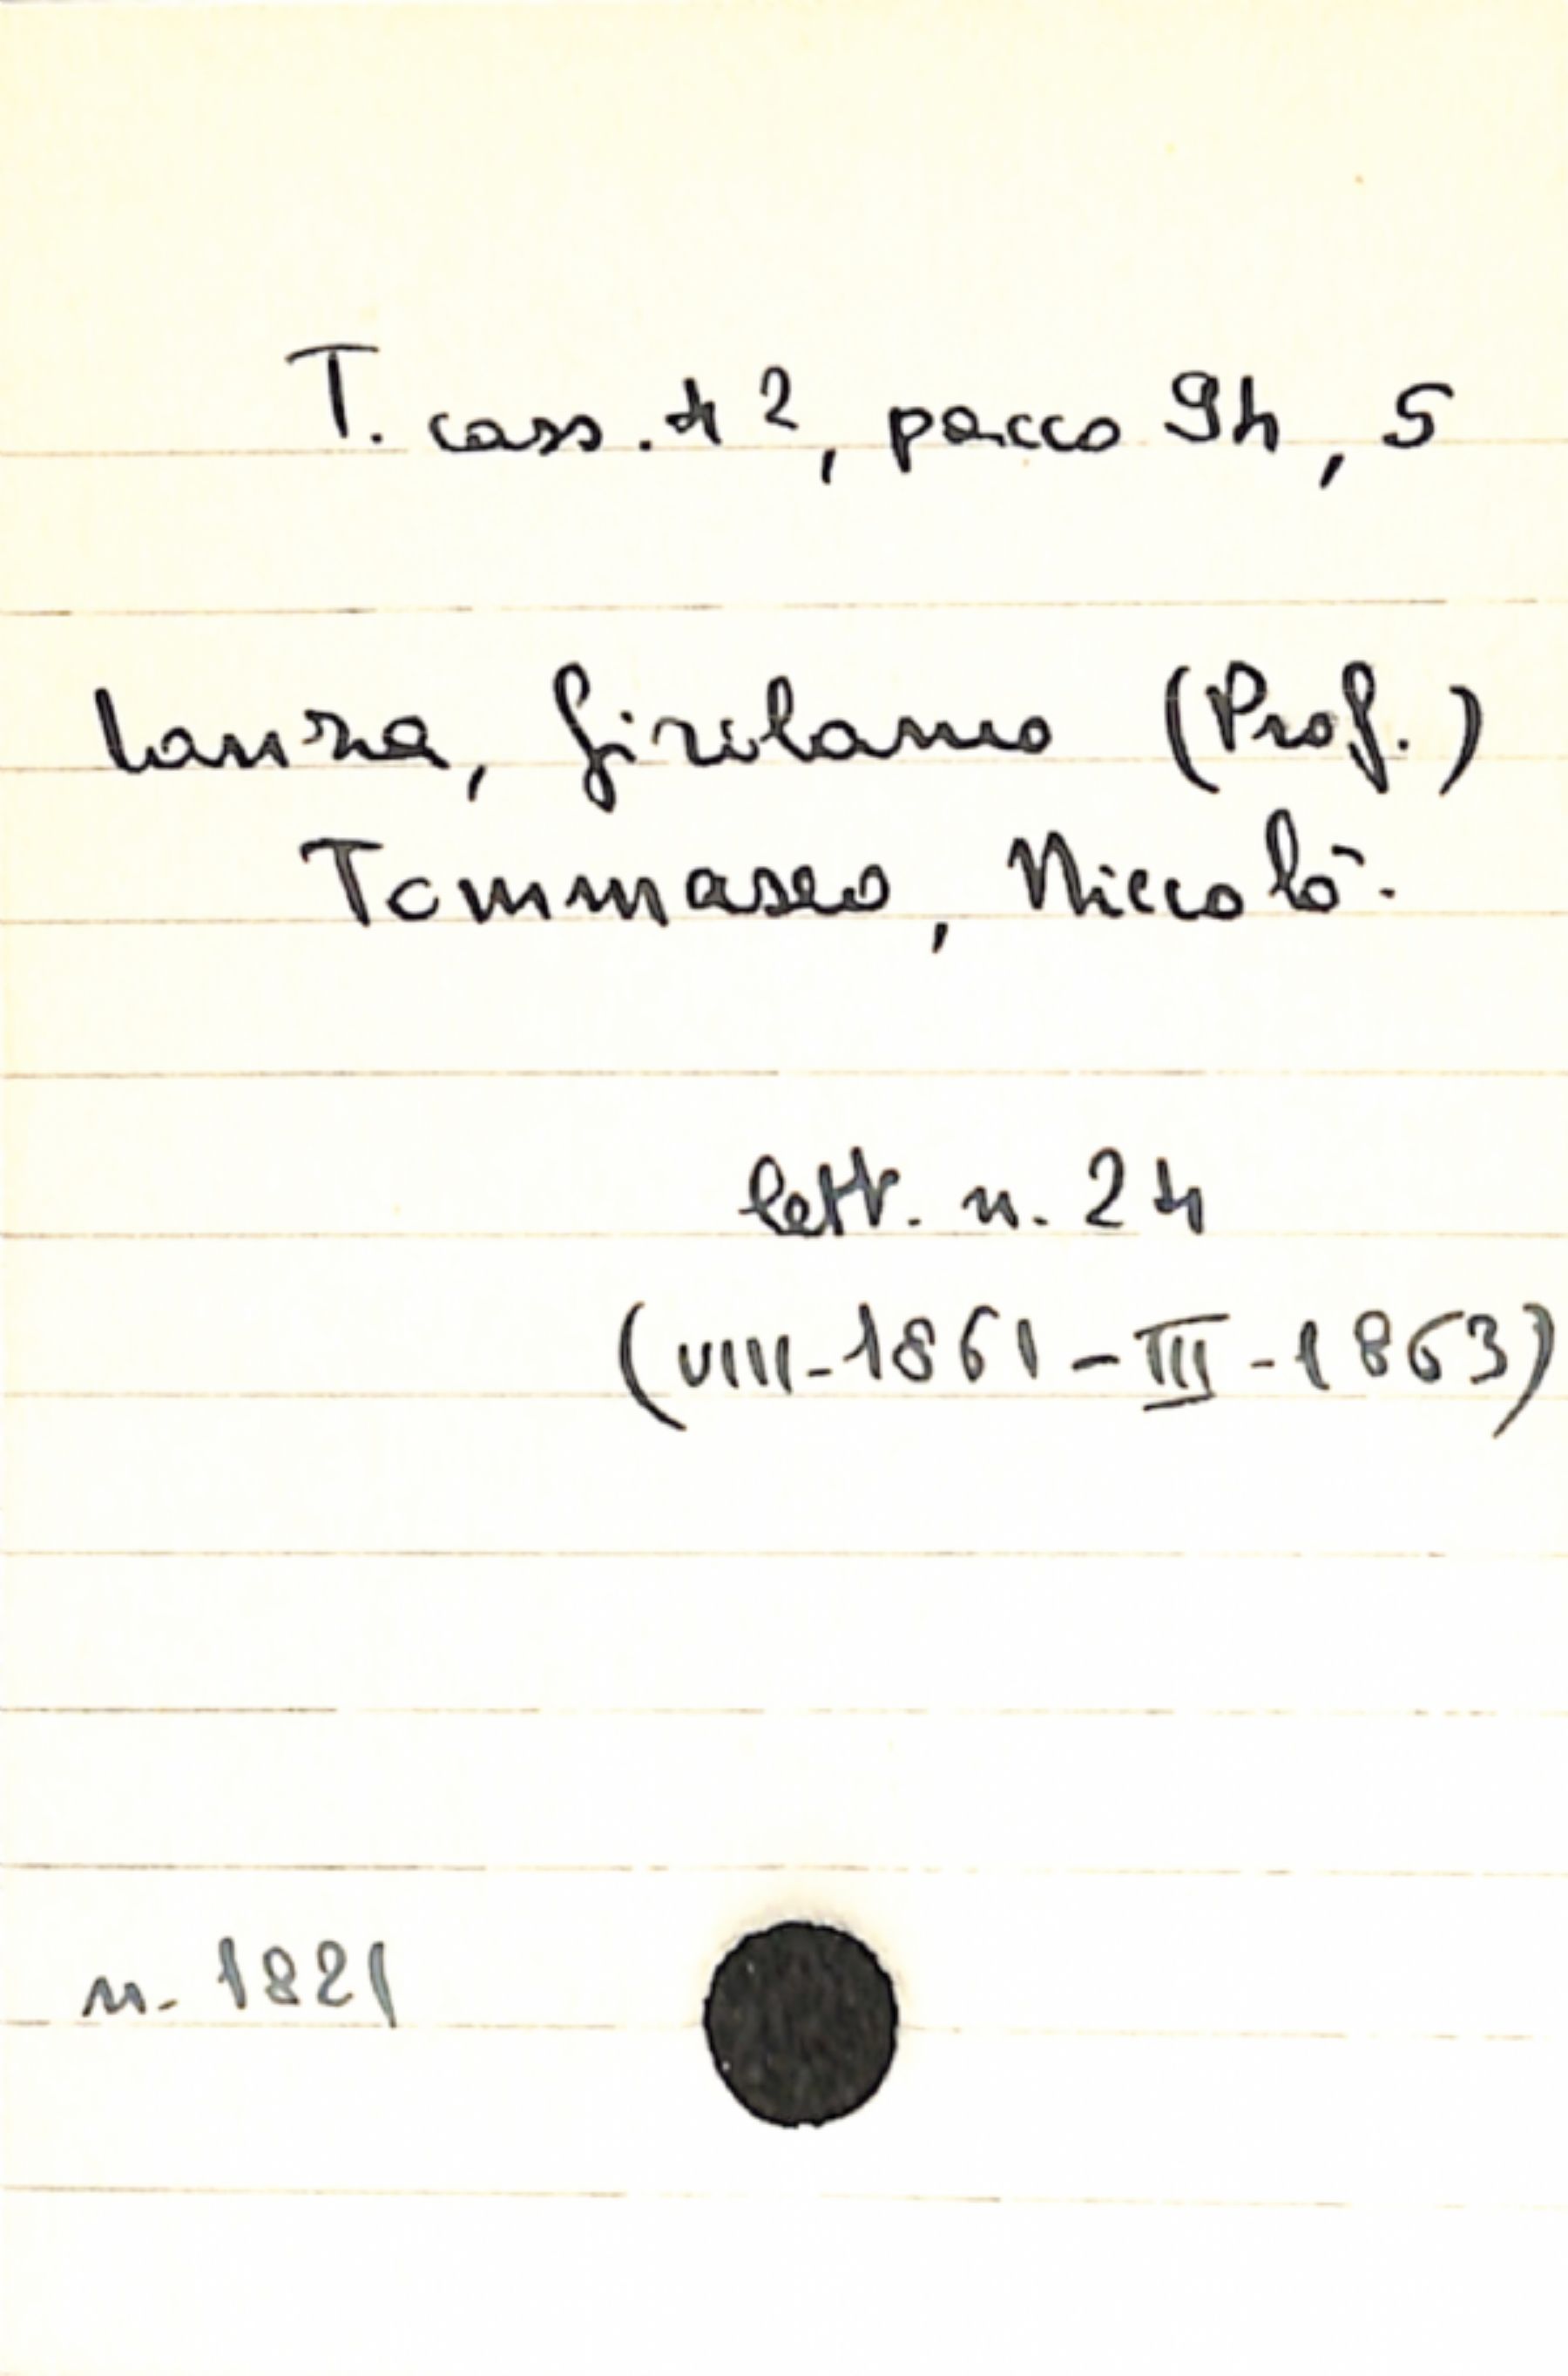 T. cass. 42, pacco 94, 5
Lanza, Girolamo (Prof.)
Tommaseo, Niccolò.
lett. n. 24
(VIII-1861-III-1863)
n. 1821